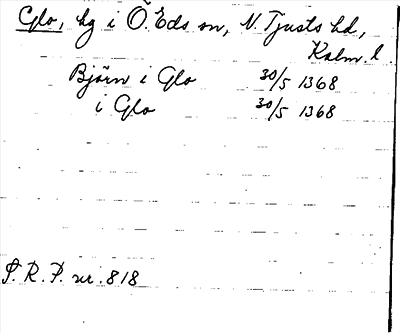 Glo, hg i Ö. Eds sn, N. Tjusts hd,
Kalm. l.
Björn i Glo 30/5 1368
i Glo 30/5 1368
S. R. P. nr. 818